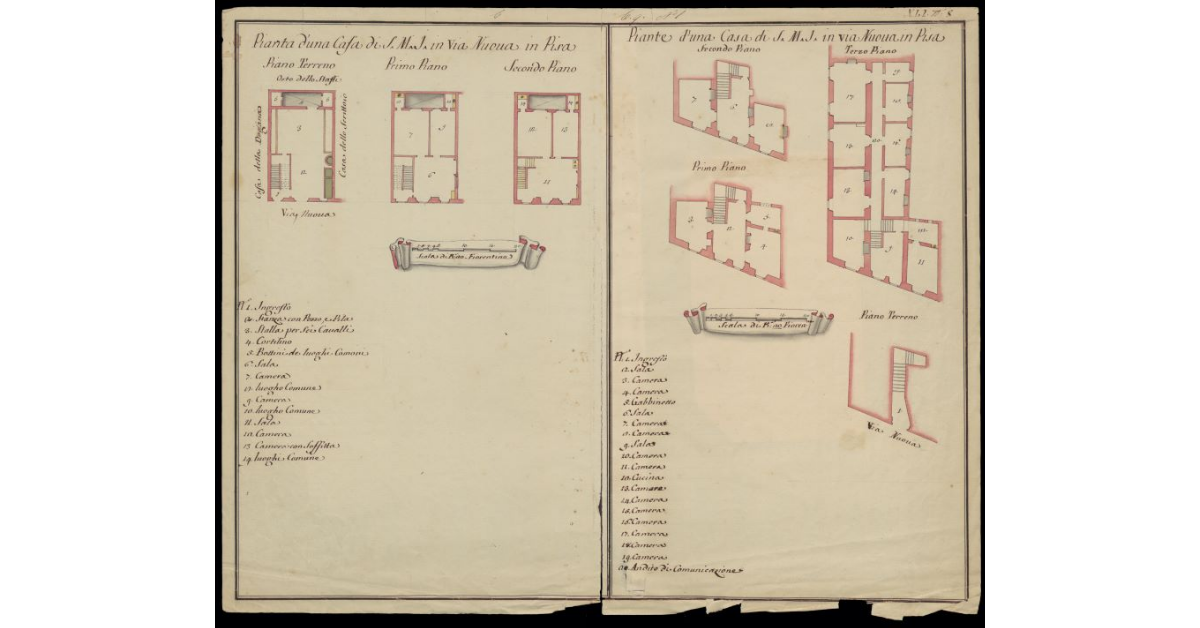 Pianta d'una Casa di S. M. I. in Via Nuova in Pisa
Piano Terreno
Primo Piano
Secondo Piano
Orto delle Staffe
Casa della Dogana
Casa dello Scrittoio
Via Nuova
Scala di B.a 20 Fiorentine
N. 1. Ingresso
2. Stanza con Pozzo e Pila
3. Stalla per Sei Cavalli
4. Cortilino
5. Bottini de luoghi Comuni
6. Sala
7. Camera
luogho Comune
9. Camera
10. luogho Comune
11. Sala
12. Camera
13. Camera con Soffitta
14. luoghi Comune
Piante d'una Casa di S. M. I. in Via Nuova in Pisa
Secondo Piano
Terzo Piano
Primo Piano
Piano Terreno
Via Nuova
Scala di B.a 20 Fioren
N. 1. Ingresso
2. Sala
3. Camera
4. Camera
5. Gabbinetto
6. Sala
7. Camera
8. Camera
9. Sala
10. Camera
11. Camera
12. Cucina
13. Camera
14. Camera
15. Camera
16. Camera
17. Camera
18. Camera
19. Camera
20. Andito di Comunicazione